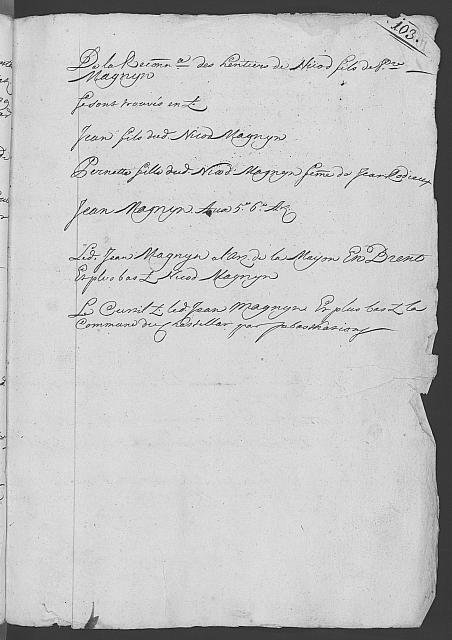 103.
De la Reconn.ce des heritiers de Nicod fils de P.re
Magnyn
se sont trouvés en
Jean fils dud. Nicod Magnyn
Pernette fille dud. Nicod Magnyn feme de Jean
Jean Magnyn
Led. Jean Magnyn de la Mayon En Brent
Et plus bas Nicod Magnyn
Le led. Jean Magnyn Et plus bas la
Commune du Chastellar par